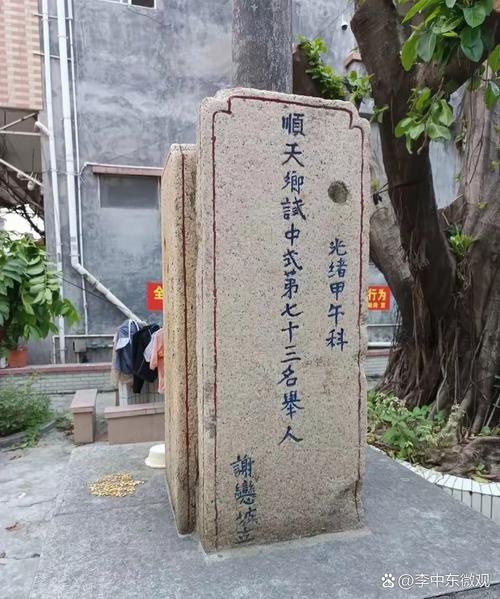 光緒甲午科
順天鄉試中式第七十三名舉人
謝
立
全
行为
@李中东微观